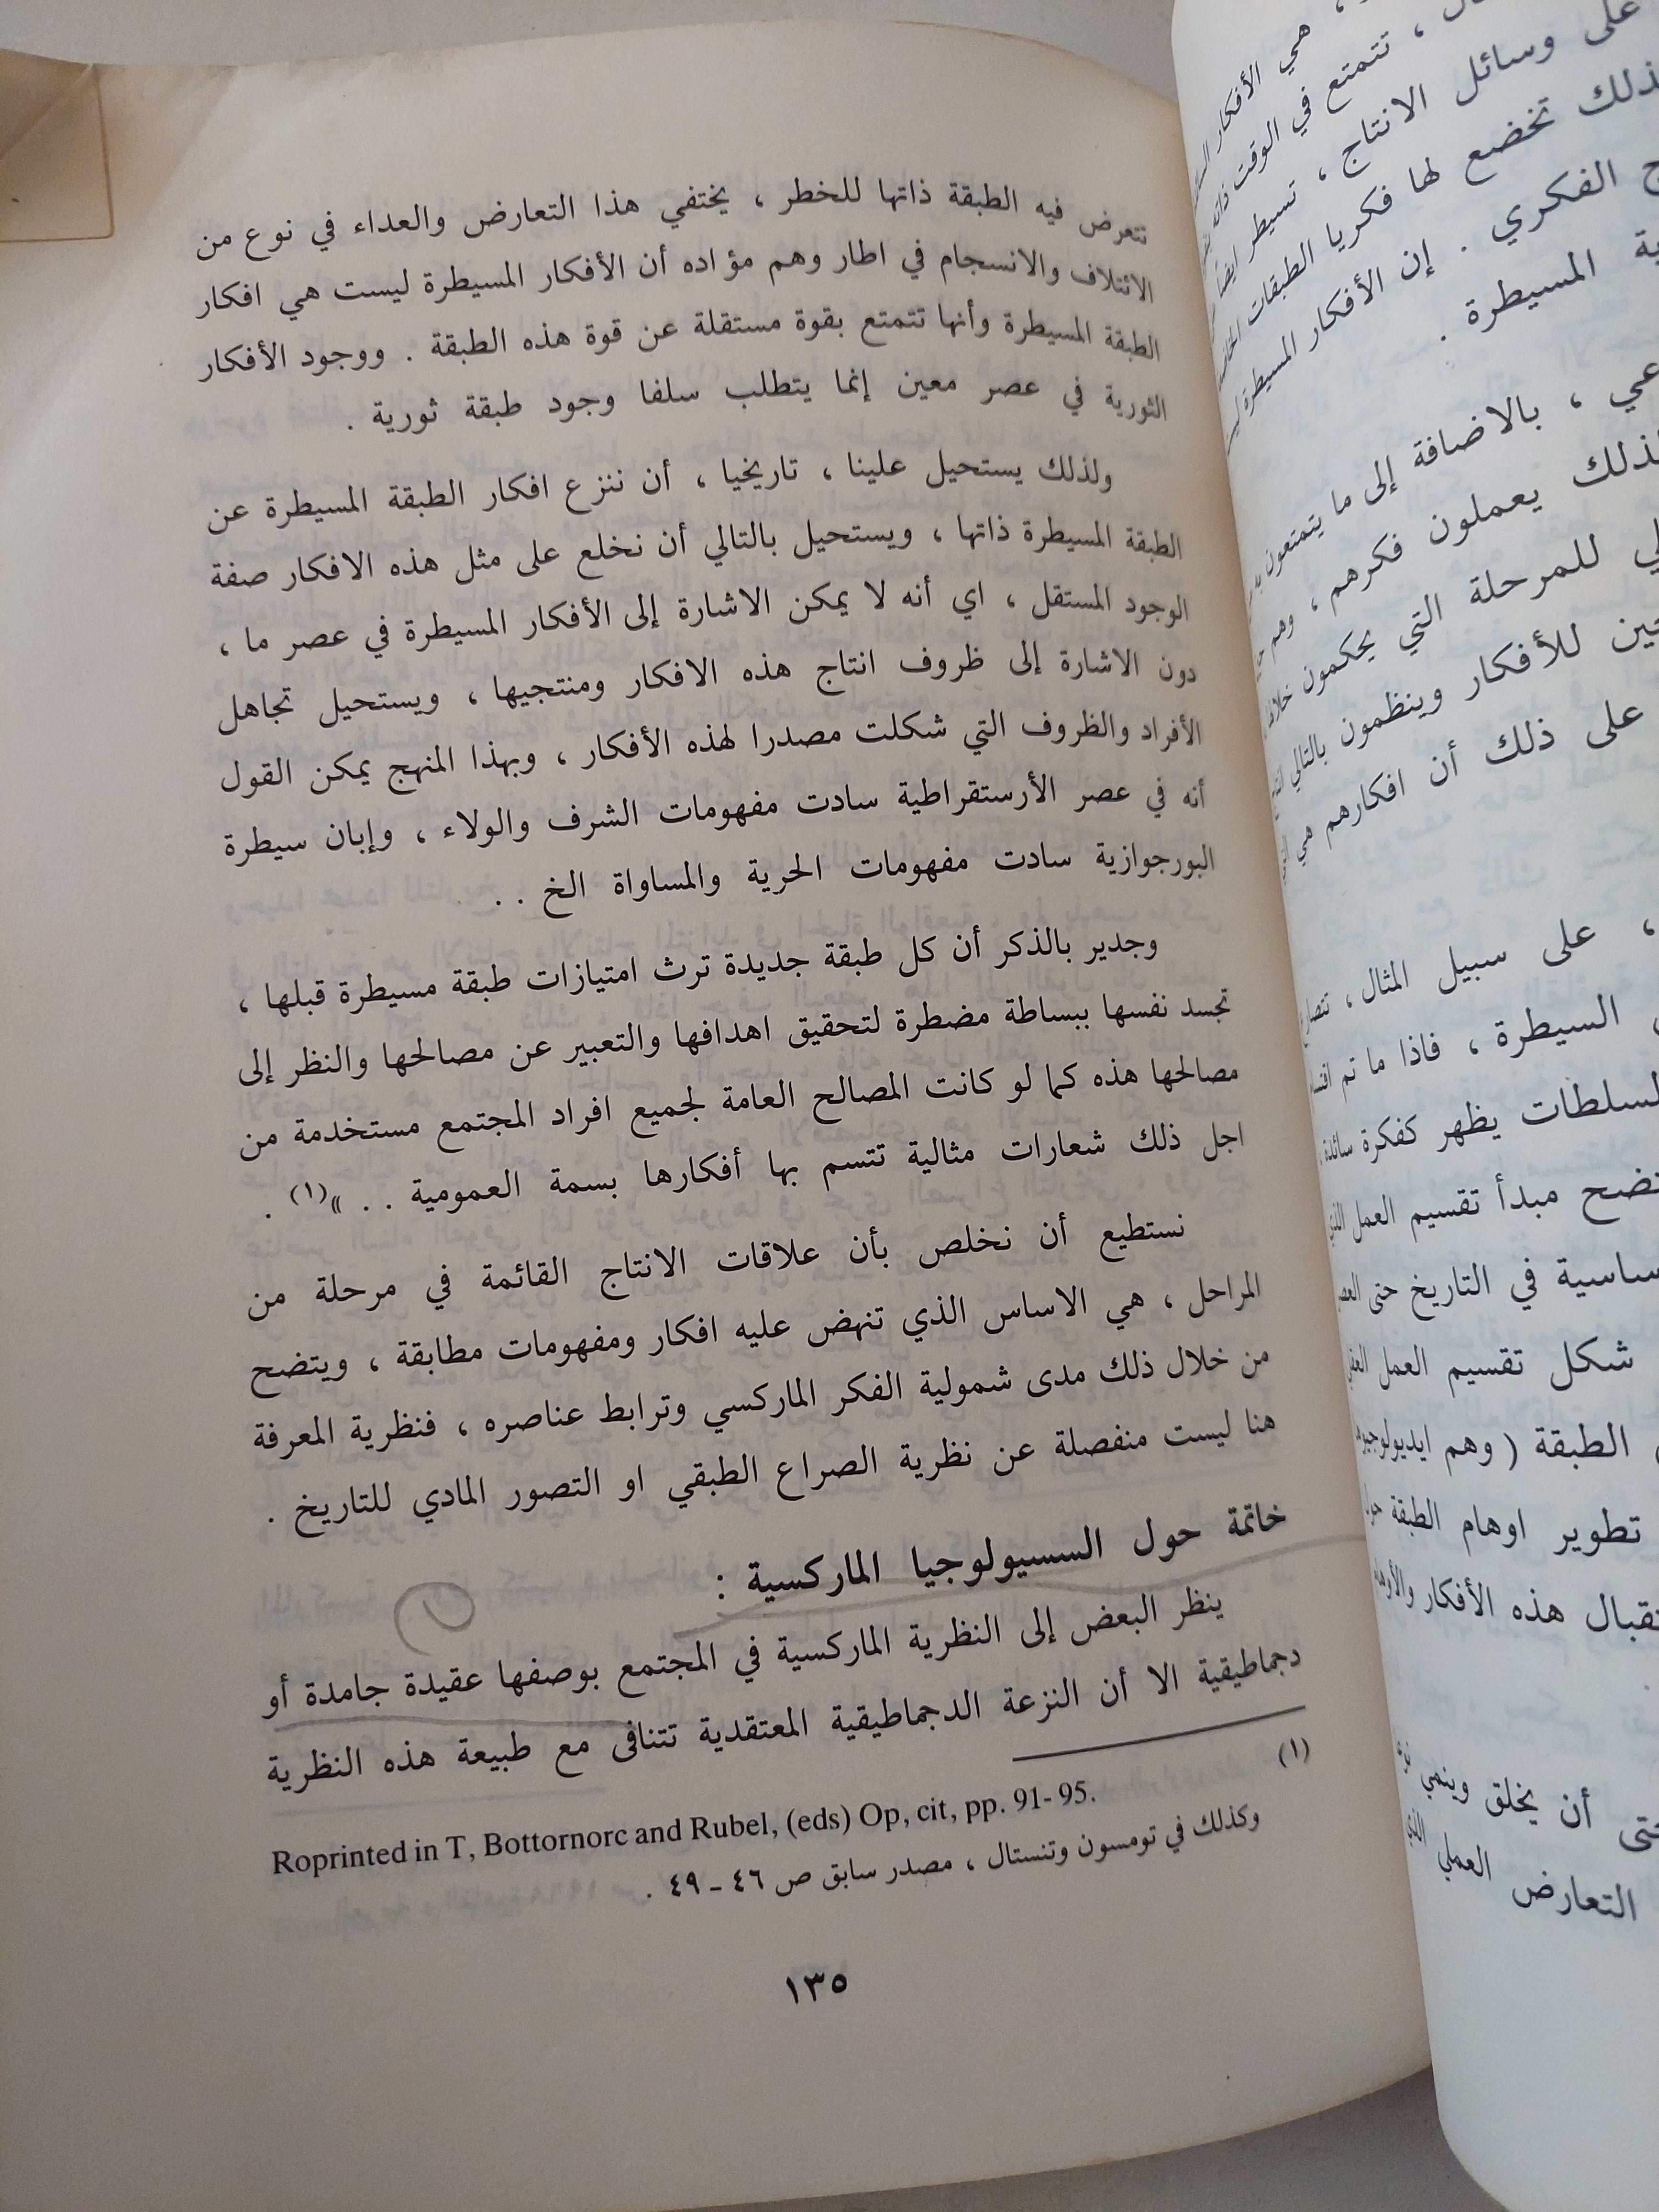 تتعرض فيه الطبقة ذاتها للخطر ، يختفي هذا التعارض والعداء في نوع من
الائتلاف والانسجام في اطار وهم مؤاده أن الأفكار المسيطرة ليست هي افكار
الطبقة المسيطرة وأنها تتمتع بقوة مستقلة عن قوة هذه الطبقة . ووجود الأفكار
الثورية في عصر معين إنما يتطلب سلفا وجود طبقة ثورية .
ولذلك يستحيل علينا ، تاريخيا ، أن ننزع افكار الطبقة المسيطرة عن
الطبقة المسيطرة ذاتها ، ويستحيل بالتالي أن نخلع على مثل هذه الافكار صفة
الوجود المستقل ، اي أنه لا يمكن الاشارة إلى الأفكار المسيطرة في عصر ما ،
دون الاشارة إلى ظروف انتاج هذه الافكار ومنتجيها ، ويستحيل تجاهل
الأفراد والظروف التي شكلت مصدرا لهذه الأفكار ، وبهذا المنهج يمكن القول
أنه في عصر الأرستقراطية سادت مفهومات الشرف والولاء ، وإبان سيطرة
البورجوازية سادت مفهومات الحرية والمساواة الخ . .
وجدير بالذكر أن كل طبقة جديدة ترث امتيازات طبقة مسيطرة قبلها ،
تجسد نفسها ببساطة مضطرة لتحقيق اهدافها والتعبير عن مصالحها والنظر إلى
مصالحها هذه كما لو كانت المصالح العامة لجميع افراد المجتمع مستخدمة من
اجل ذلك شعارات مثالية تتسم بها أفكارها بسمة العمومية . . »(١) .
نستطيع أن نخلص بأن علاقات الانتاج القائمة في مرحلة من
المراحل ، هي الاساس الذي تنهض عليه افكار ومفهومات مطابقة ، ويتضح
من خلال ذلك مدى شمولية الفكر الماركسي وترابط عناصره ، فنظرية المعرفة
هنا ليست منفصلة عن نظرية الصراع الطبقي او التصور المادي للتاريخ .
خاتمة حول السسيولوجيا الماركسية :
ينظر البعض إلى النظرية الماركسية في المجتمع بوصفها عقيدة جامدة أو
دجماطيقية الا أن النزعة الدجماطيقية المعتقدية تتنافى مع طبيعة هذه النظرية
(١)
Roprinted in T, Bottornorc and Rubel, (eds) Op, cit, pp. 91- 95.
وكذلك في تومسون وتنستال ، مصدر سابق ص ٤٦ - ٤٩ .
١٣٥
هي الأفكار
، تتمتع في الوقت ذاته
على وسائل الانتاج ، تسيطر ايضاً
تخضع لها فكريا الطبقات
الفكري . إن الأفكار المسيطرة
المسيطرة .
، بالاضافة إلى ما يتمتعون
يعملون فكرهم ، وهم
للمرحلة التي يحكمون
للأفكار وينظمون بالتالي
على ذلك أن افكارهم هي
، على سبيل المثال ،
السيطرة ، فاذا ما تم
السلطات يظهر كفكرة سائدة
مبدأ تقسيم العمل الذي
في التاريخ حتى
شكل تقسيم العمل
الطبقة ( وهم
تطوير اوهام الطبقة
هذه الأفكار
أن يخلق وينمي
التعارض العملي الذي